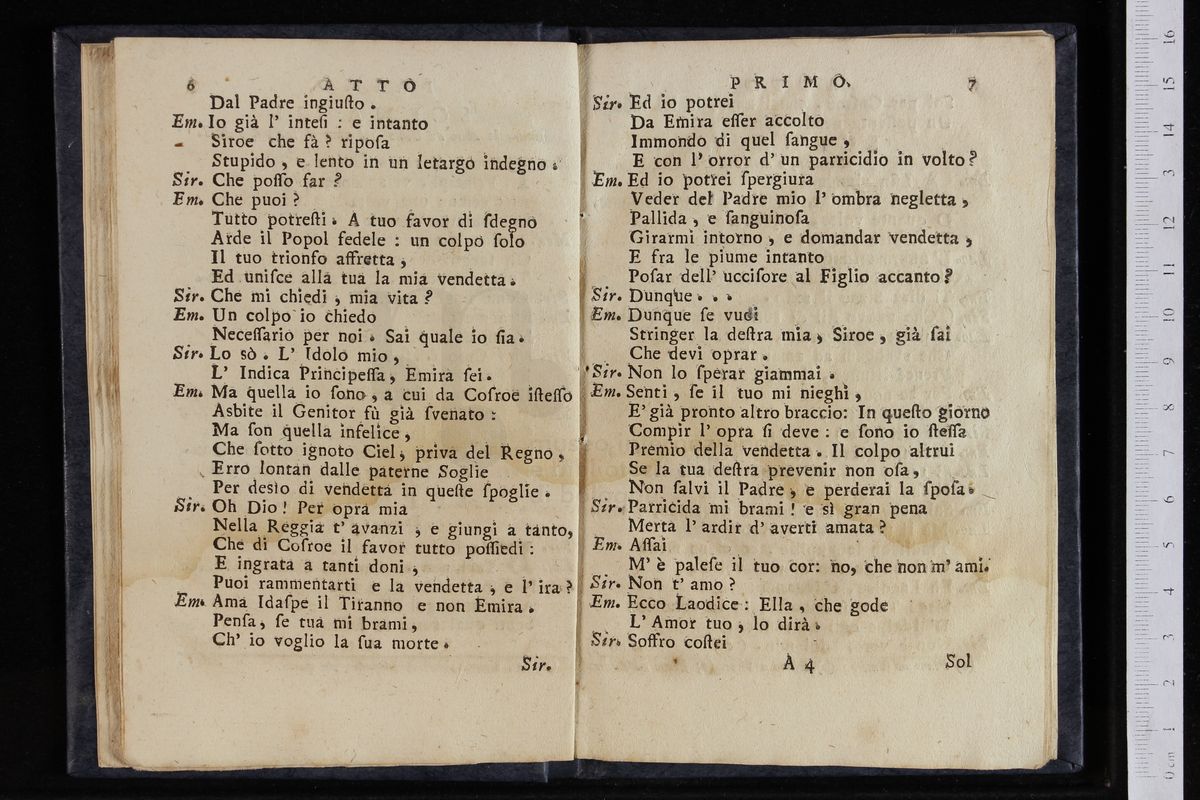 6 ATTO
Dal Padre ingiuſto .
Em. Io già l' inteſi : e intanto
Siroe che fà ? ripoſa
Stupido , e lento in un letargo indegno .
Sir. Che poſſo far ?
Em. Che puoi ?
Tutto potreſti . A tuo favor di ſdegno
Arde il Popol fedele : un colpo ſolo
Il tuo trionfo affretta ,
Ed uniſce alla tua la mia vendetta .
Sir. Che mi chiedi , mia vita ?
Em. Un colpo io chiedo
Neceſſario per noi . Sai quale io ſia .
Sir. Lo sò . L' Idolo mio ,
L' Indica Principeſſa , Emira ſei .
Em. Ma quella io ſono , a cui da Coſroe iſteſſo
Asbite il Genitor fù già ſvenato :
Ma ſon quella infelice ,
Che ſotto ignoto Ciel , priva del Regno ,
Erro lontan dalle paterne Soglie
Per desìo di vendetta in queſte ſpoglie .
Sir. Oh Dio ! Per opra mia
Nella Reggia t' avanzi , e giungi a tanto,
Che di Coſroe il favor tutto poſſiedi :
E ingrata a tanti doni ,
Puoi rammentarti e la vendetta , e l' ira ?
Em. Ama Idaſpe il Tiranno e non Emira .
Penſa , ſe tua mi brami ,
Ch' io voglio la ſua morte .
Sir.
PRIMO. 7
Sir. Ed io potrei
Da Emira eſſer accolto
Immondo di quel ſangue ,
E con l' orror d' un parricidio in volto ?
Em. Ed io potrei ſpergiura
Veder del Padre mio l' ombra negletta ,
Pallida , e ſanguinoſa
Girarmi intorno , e domandar vendetta ,
E fra le piume intanto
Poſar dell' ucciſore al Figlio accanto ?
Sir. Dunque . . .
Em. Dunque ſe vuoi
Stringer la deſtra mia , Siroe , già ſai
Che devi oprar .
Sir. Non lo ſperar giammai .
Em. Senti , ſe il tuo mi nieghi ,
E' già pronto altro braccio: In queſto giorno
Compir l' opra ſi deve : e ſono io ſteſſa
Premio della vendetta . Il colpo altrui
Se la tua deſtra prevenir non oſa ,
Non ſalvi il Padre , e perderai la ſpoſa .
Sir. Parricida mi brami ! e sì gran pena
Merta l' ardir d' averti amata ?
Em. Aſſai
M' è paleſe il tuo cor: no, che non m' ami.
Sir. Non t' amo ?
Em. Ecco Laodice : Ella , che gode
L' Amor tuo , lo dirà .
Sir. Soffro coſtei
A 4 Sol
0 cm 1 2 3 4 5 6 7 8 9 10 11 12 13 14 15 16